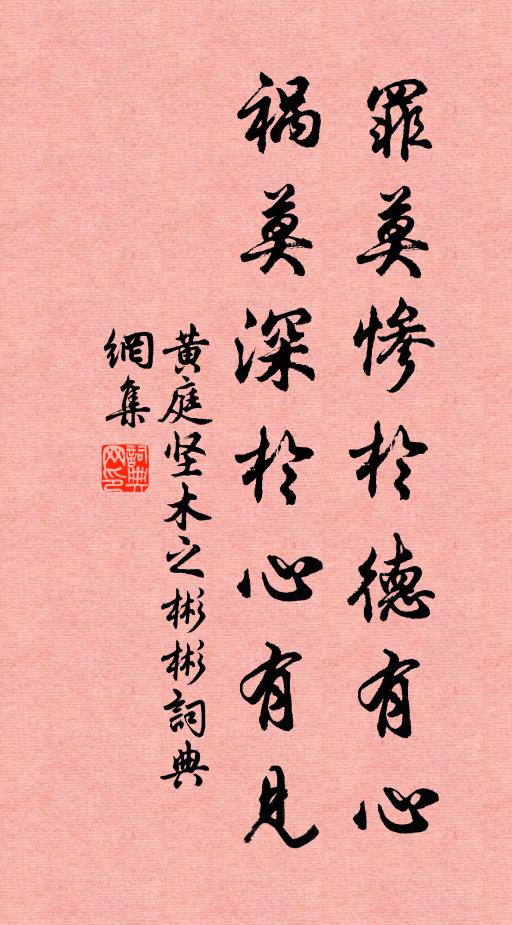 罪莫慘於德有心
禍莫深於心有見
黄庭坚木之彬彬詞典
網集
詞典
网印